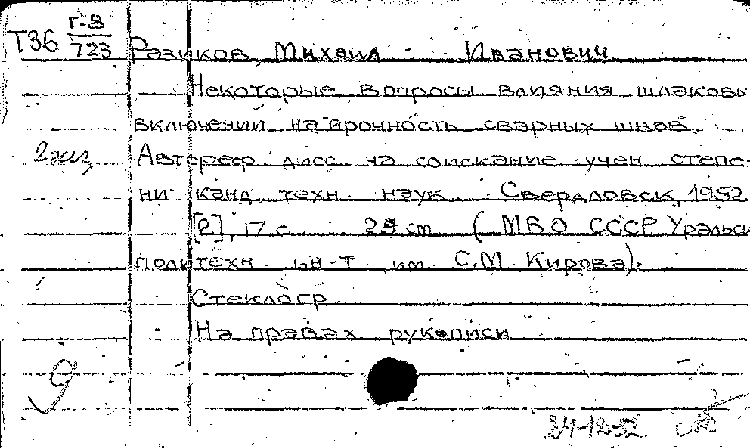 Т36 Г-В
723
Разиков, Михаил Иванович
Некоторые вопросы влияния шлаковы
включений на прочность сварных швов.
2 экз Автореф. дисс. на соискание учен. степе-
ни канд. техн. наук. Свердловск, 1952
[2], 17 с. 29 см (МВО СССР Уральск
политехн. ин-т им. С.М. Кирова).
Стеклогр
На правах рукописи
9
24-12-52